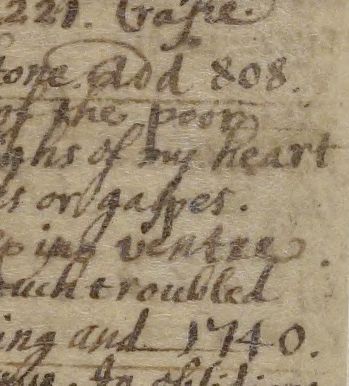 221. Gaspe.
tone. Add 808.
of the poor
ighs of my heart
es or gaspes.
ping ventre.
much troubled
ing and 1740.